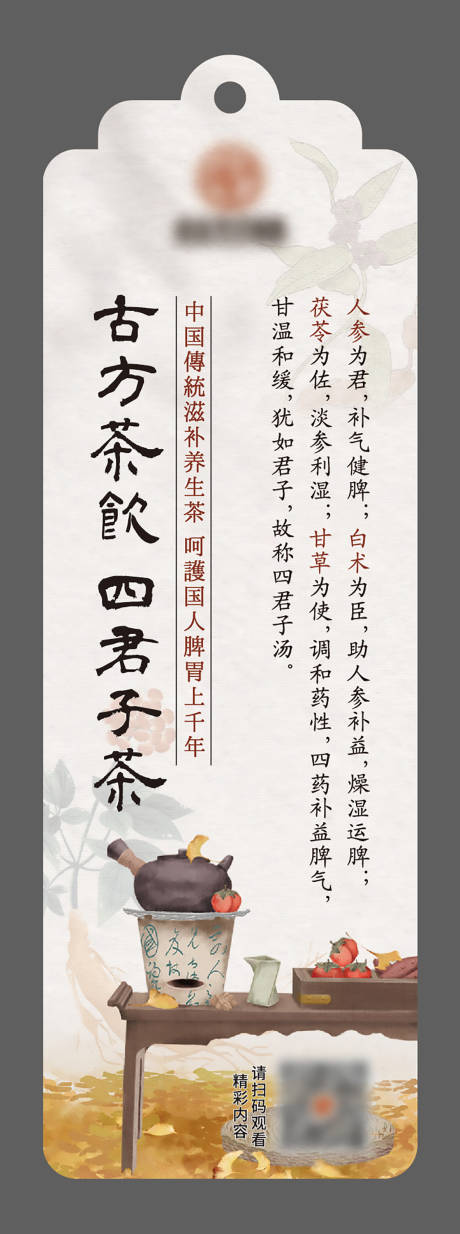 人参为君，补气健脾；白术为臣，助人参补益，燥湿运脾；
茯苓为佐，淡参利湿；甘草为使，调和药性，四药补益脾气，
甘温和缓，犹如君子，故称四君子汤。
中国傳統滋补养生茶 呵護国人脾胃上千年
古方茶飲 四君子茶
请扫码观看
精彩内容